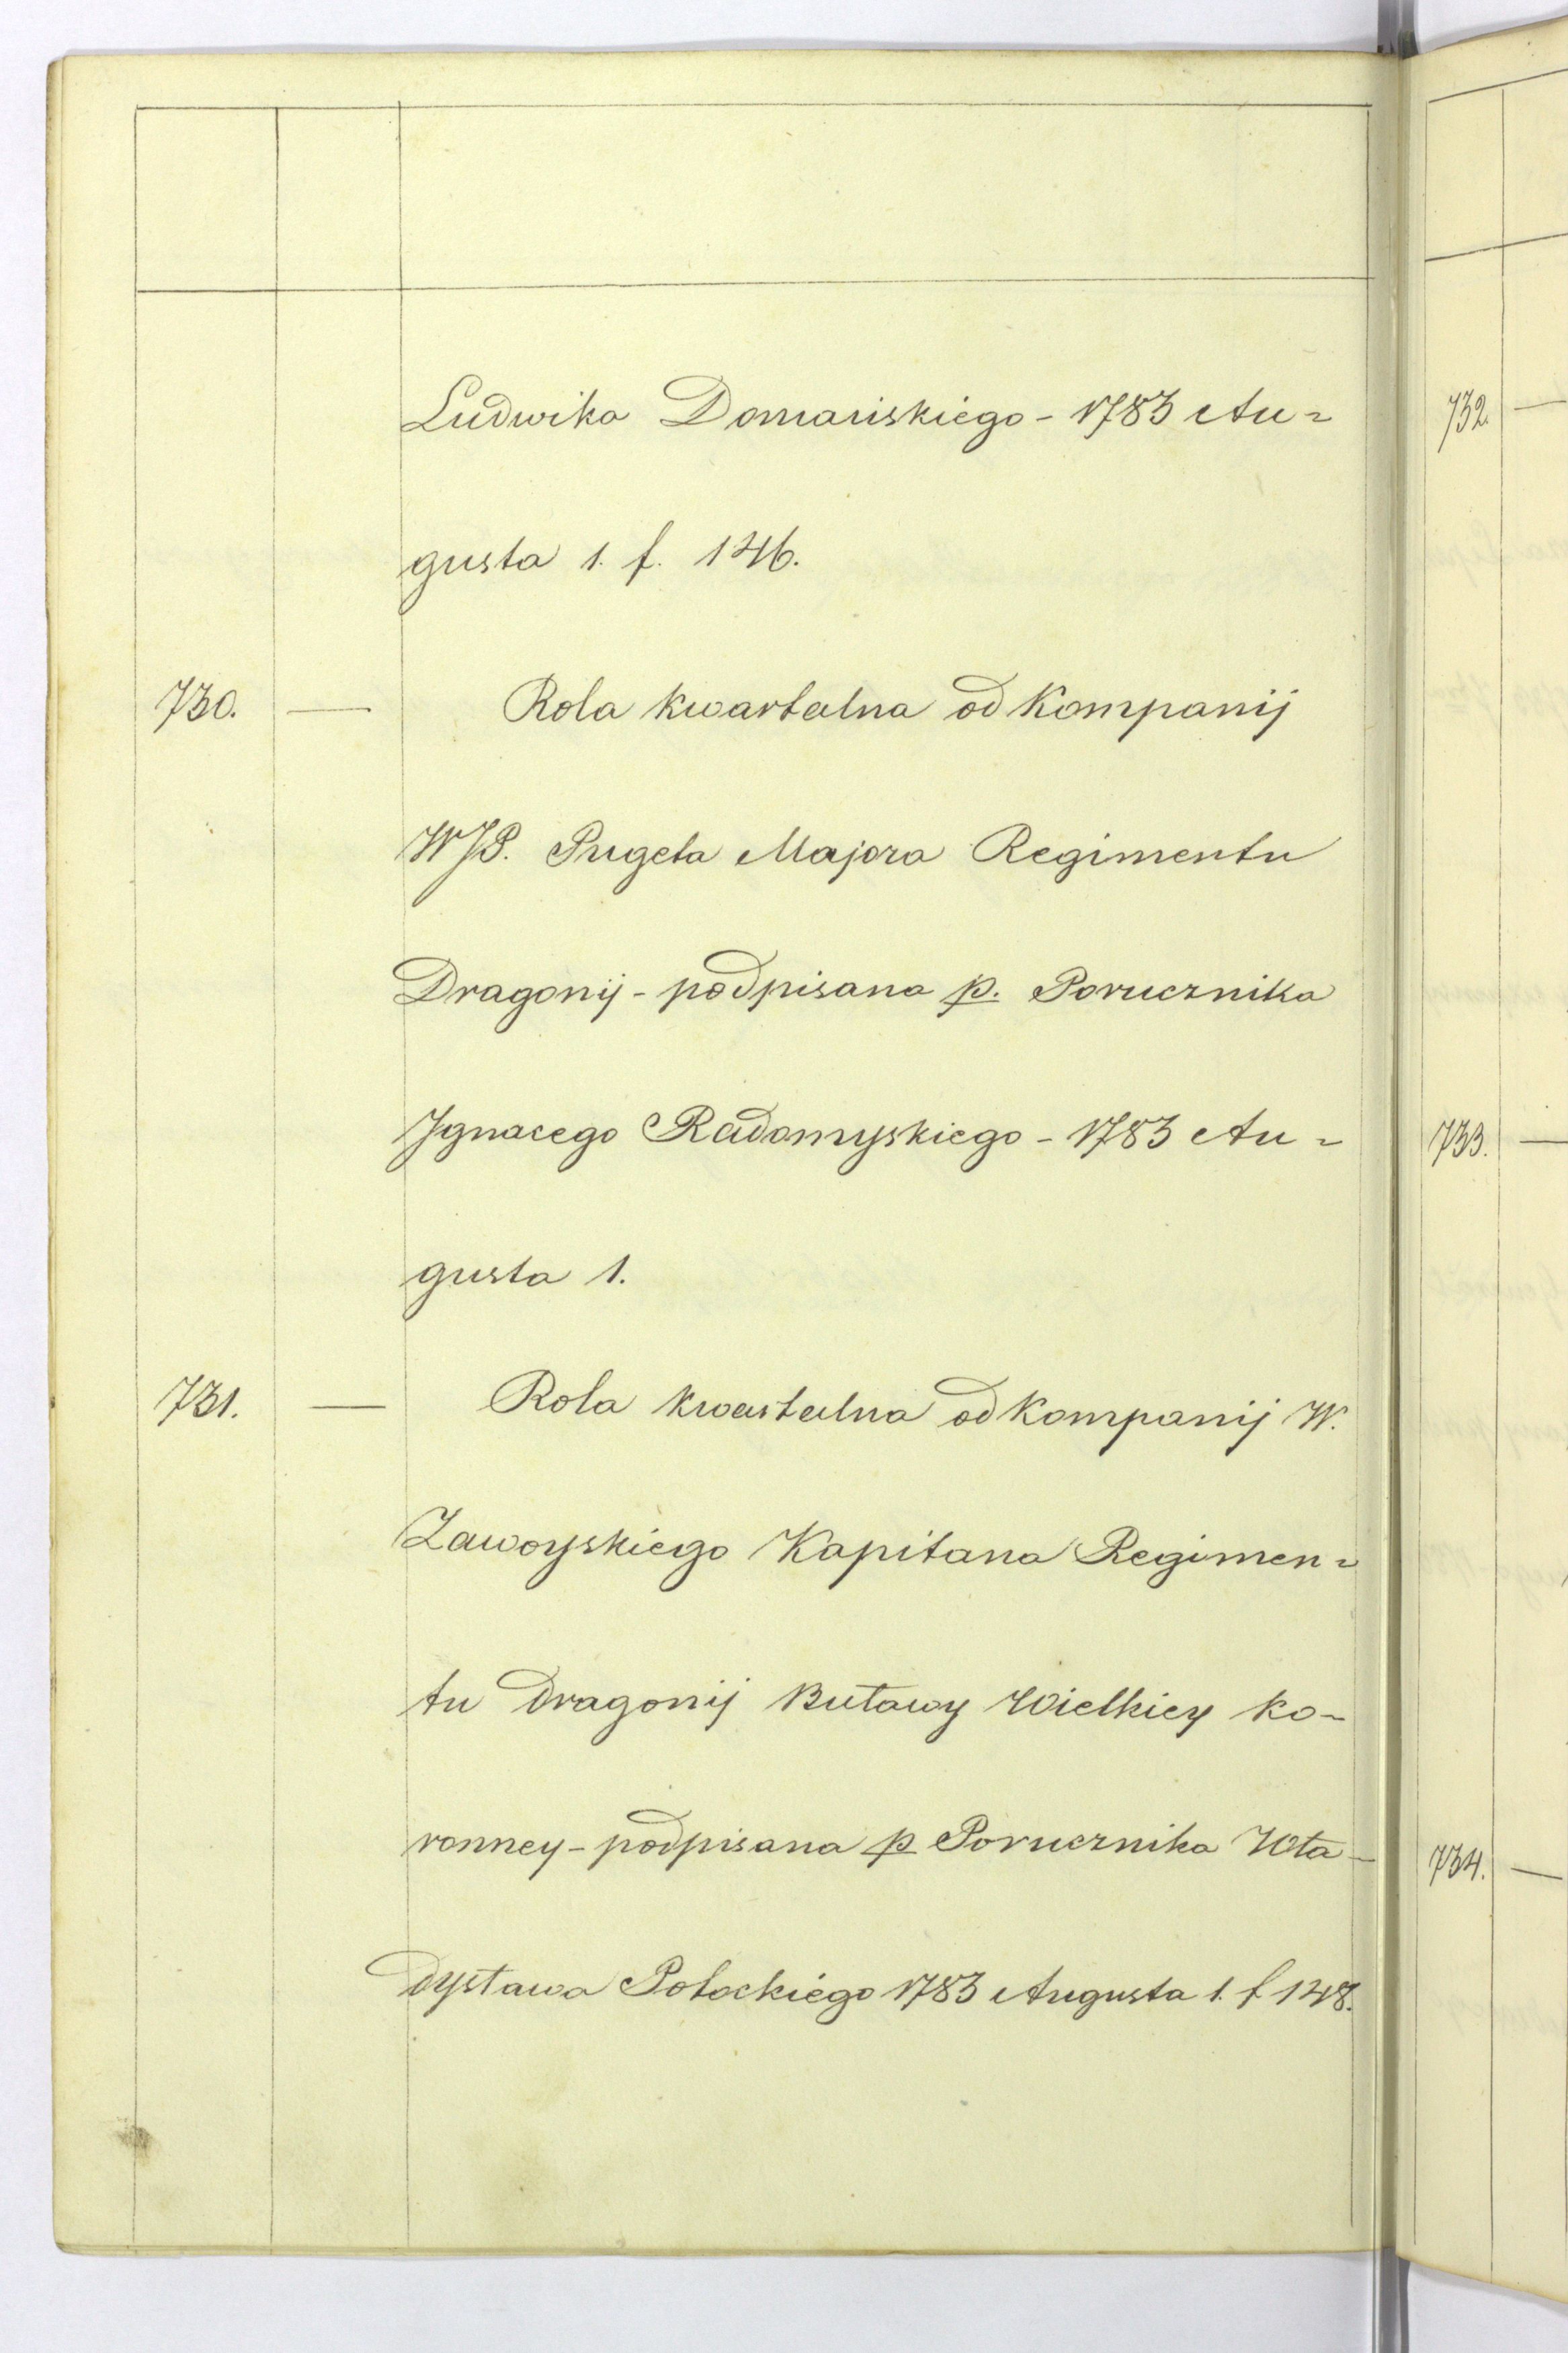 Ludwika Domańskiego - 1783 Au=
gusta 1. f. 146.
730. — Rola kwartalna od Kompanij
WJP. Pugeta Majora Regimentu
Dragonij - podpisana p. Porucznika
Jgnacego Radomyskiego - 1783 Au=
gusta 1.
731. — Rola kwartalna od Kompanij W.
Zawoyskiego Kapitana Regimen=
tu Dragonij Buławy Wielkiey Ko-
ronney - podpisana p Porucznika Wła-
dysława Potockiego 1783 Augusta 1. f 148.
732. —
733. —
734. —